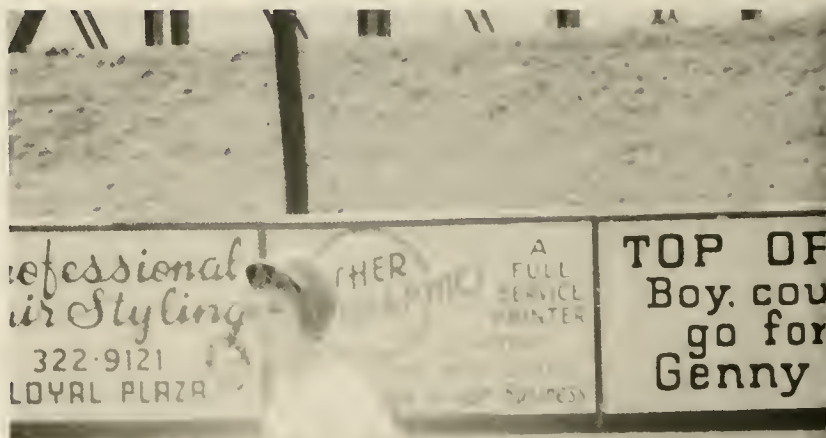 ofessional
air Styling
322-9121
LOYAL PLAZA
THER
A
FULL
SERVICE
PRINTER
BUSINESS
TOP OF
Boy. cou
go for
Genny